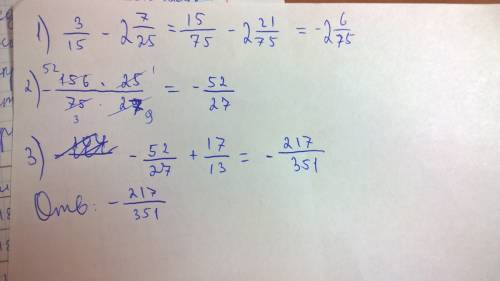 1) 3/15 - 2 7/25 = 15/75 - 2 21/75 = -2 6/75
2) - 156 · 25 / 75 · 27 = - 52/27
52 1
3 9
3) - 52/27 + 17/13 = - 217/351
Отв: - 217/351